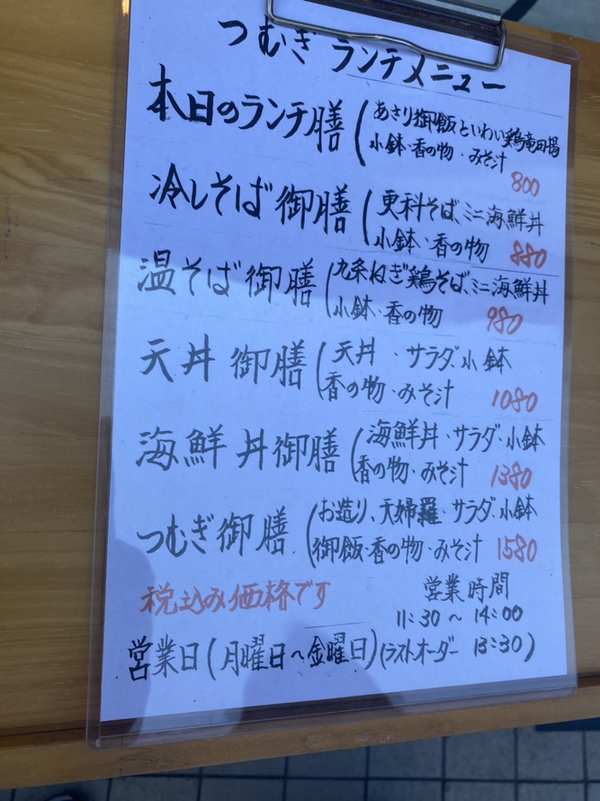 つむぎランチメニュー
本日のランチ膳(あさり御飯といわい鶏竜田揚
小鉢・香の物・みそ汁
800
冷しそば御膳(更科そば、ミニ海鮮丼
小鉢・香の物 880
温そば御膳(九条ねぎ鶏そば、ミニ海鮮丼
小鉢・香の物 980
天丼御膳(天丼・サラダ、小鉢
香の物・みそ汁 1080
海鮮丼御膳(海鮮丼・サラダ・小鉢
香の物・みそ汁 1380
つむぎ御膳(お造り、天婦羅・サラダ・小鉢
御飯・香の物・みそ汁 1580
税込み価格です
営業時間
11:30〜14:00
営業日(月曜日〜金曜日)(ラストオーダー 13:30)